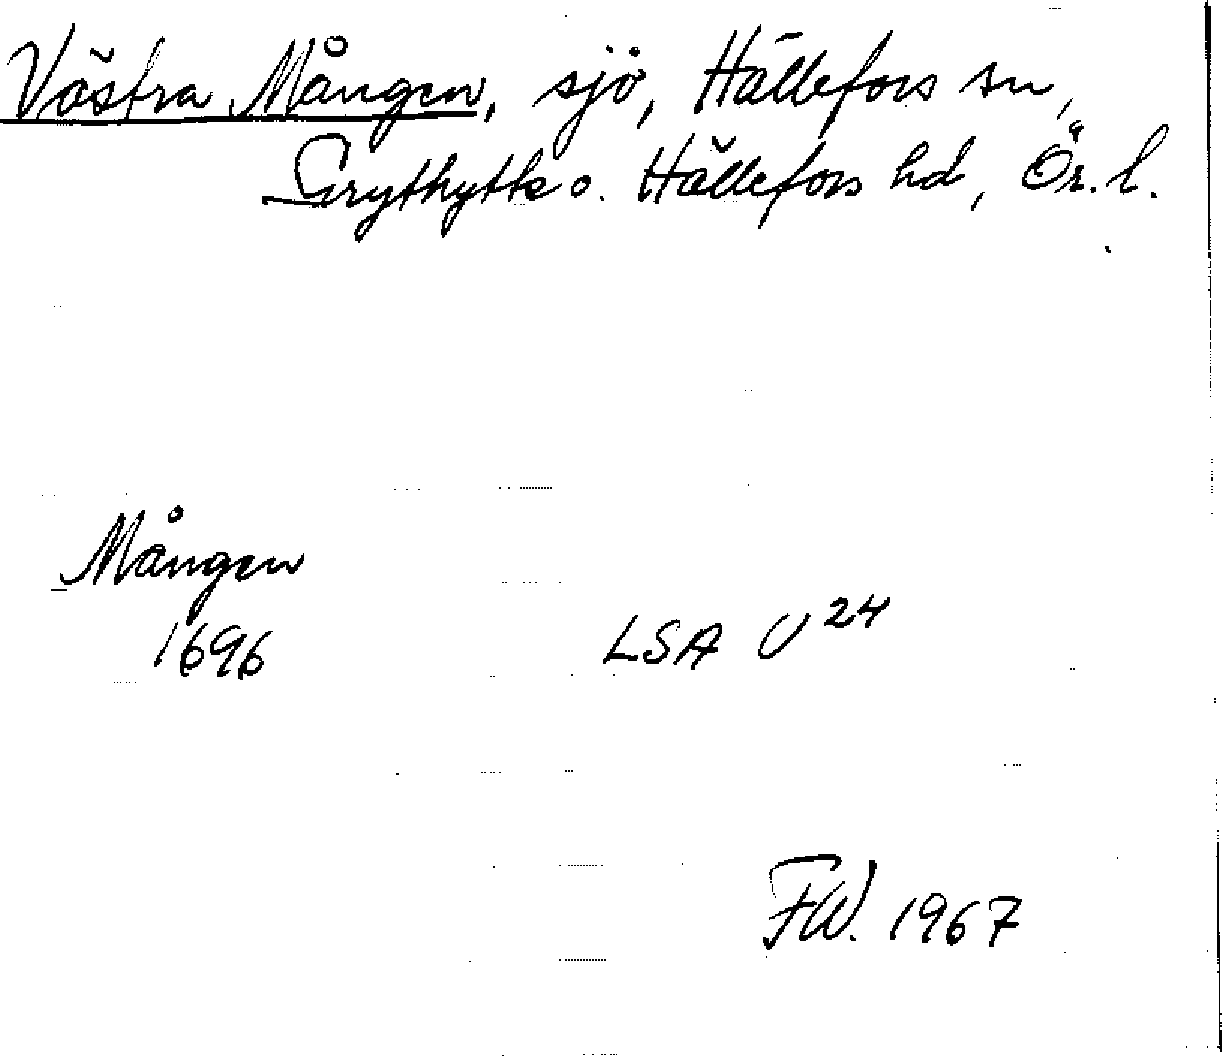 Västra Mången, sjö, Hällefors sn,
Grythytte o. Hällefors hd, Ör. l.
Mången
1696
LSA U 24
FW. 1967